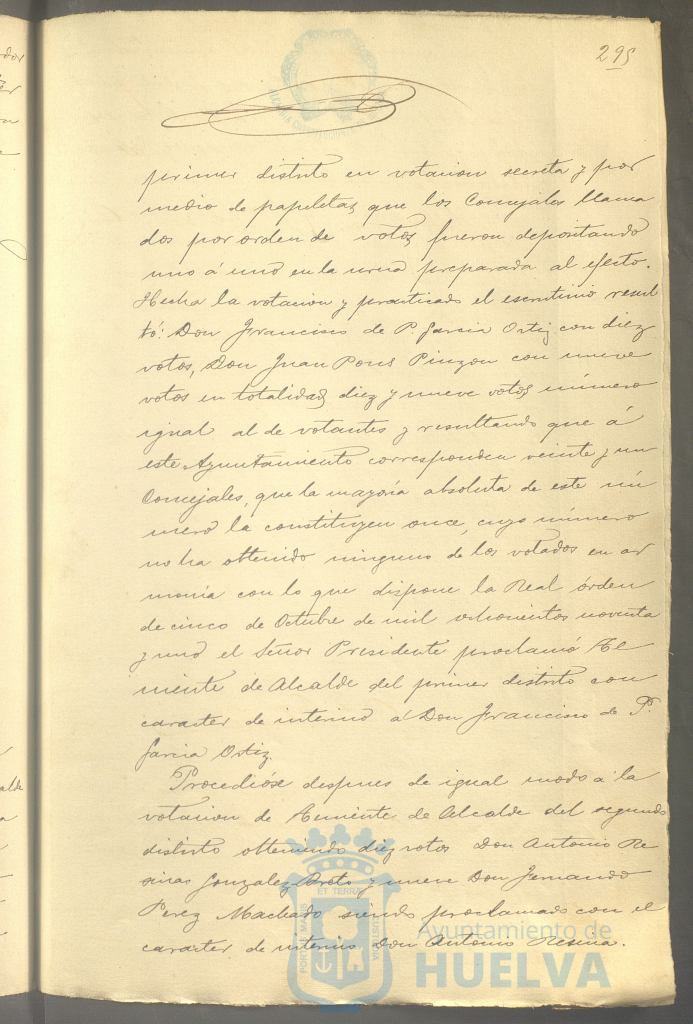 295
primer distrito en votacion secreta y por
medio de papeletas que los Concejales llama
dos por orden de votos fueron depositando
uno á uno en la urna preparada al efecto.
Hecha la votacion y practicado el escrutinio resul
tó: Don Francisco de P. Garcia Ortiz con diez
votos, Don Juan Pons Pinzon con nueve
votos en totalidad diez y nueve votos número
igual al de votantes y resultando que á
este Ayuntamiento corresponden veinte y un
Concejales, que la mayoria absoluta de este nú
mero la constituyen once, cuyo número
no ha obtenido ninguno de los votados en ar
monia con lo que dispone la Real órden
de cinco de Octubre de mil ochocientos noventa
y uno el Señor Presidente proclamó Te
niente de Alcalde del primer distrito con
caracter de interino á Don Francisco de P.
Garcia Ortiz.
Procedióse despues de igual modo a la
votacion de Teniente de Alcalde del segundo
distrito obteniendo diez votos Don Antonio Re
sinas Gonzalez y nueve Don Fernando
Perez Machado siendo proclamado con el
caracter de interino Don Antonio Resina.
PORTUS MARIS ET TERRAE CUSTODIA
Ayuntamiento de
HUELVA